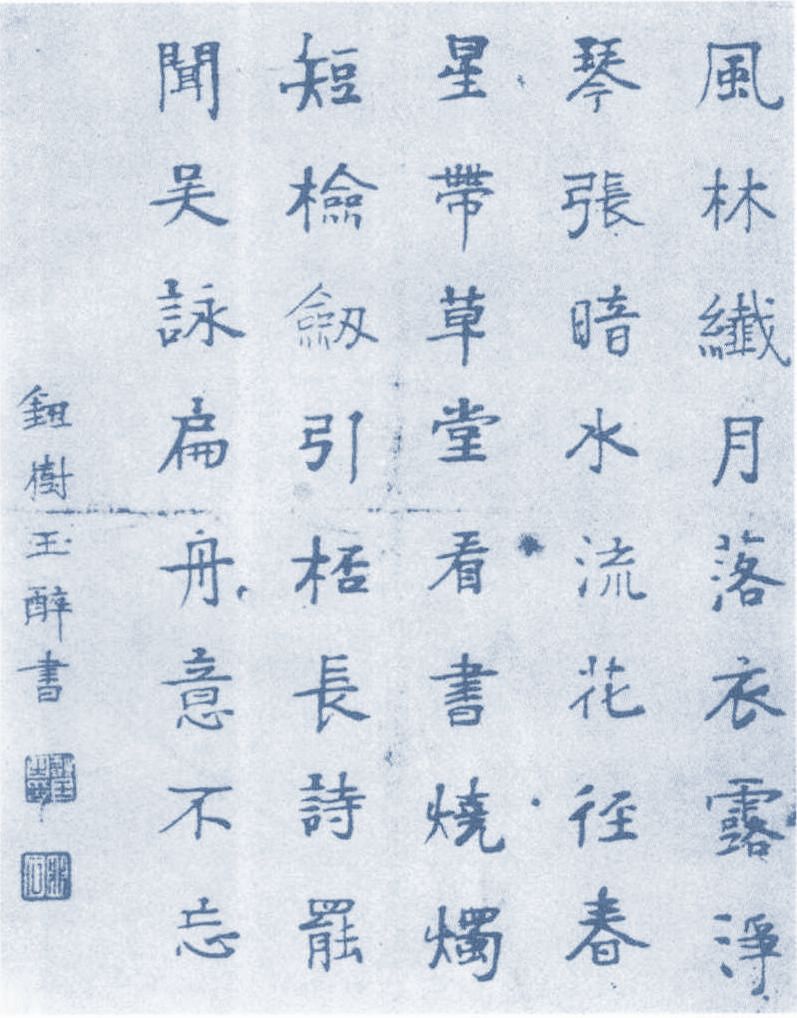 風林纖月落衣露淨
琴張暗水流花径春
星帶草堂看書燒燭
短檢劒引桮長詩罷
聞吴詠扁舟意不忘
鈕樹玉醉書